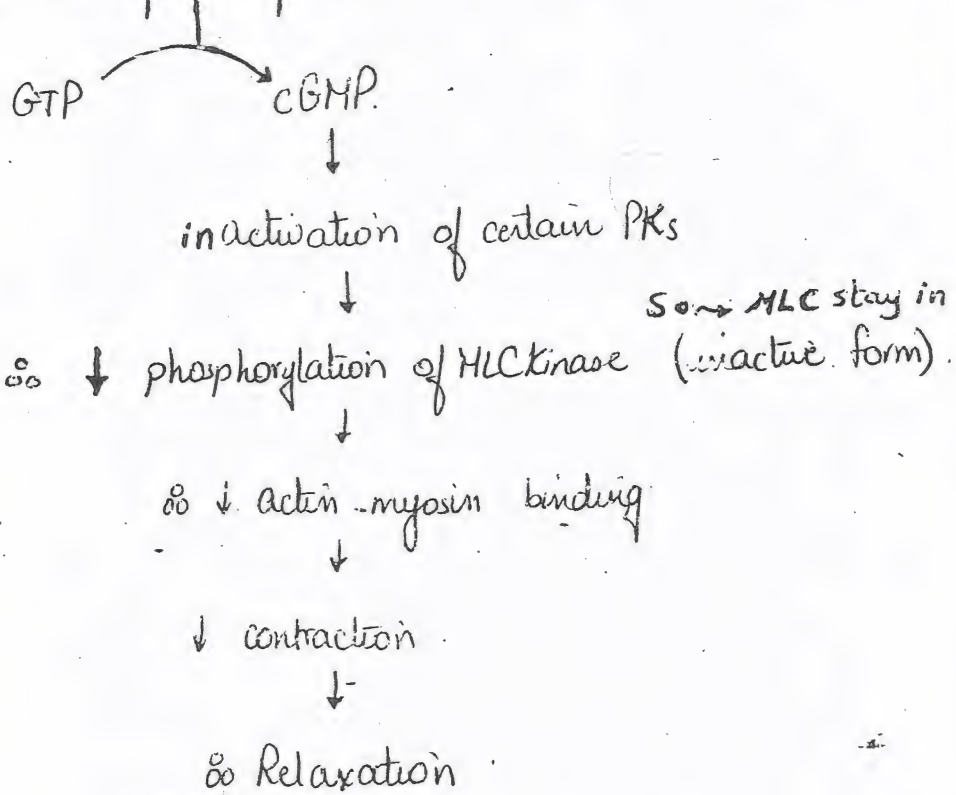 GTP cGMP.
↓
inactivation of certain PKs
↓
So⇝ MLC stay in
∴ ↓ phosphorylation of MLCkinase (inactive form).
↓
∴ ↓ actin-myosin binding
↓
↓ contraction.
↓
∴ Relaxation